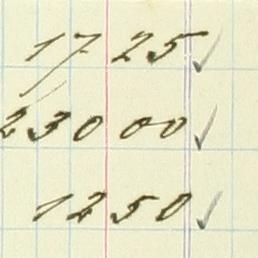 17 25 ✓
230 00 ✓
12 50 ✓